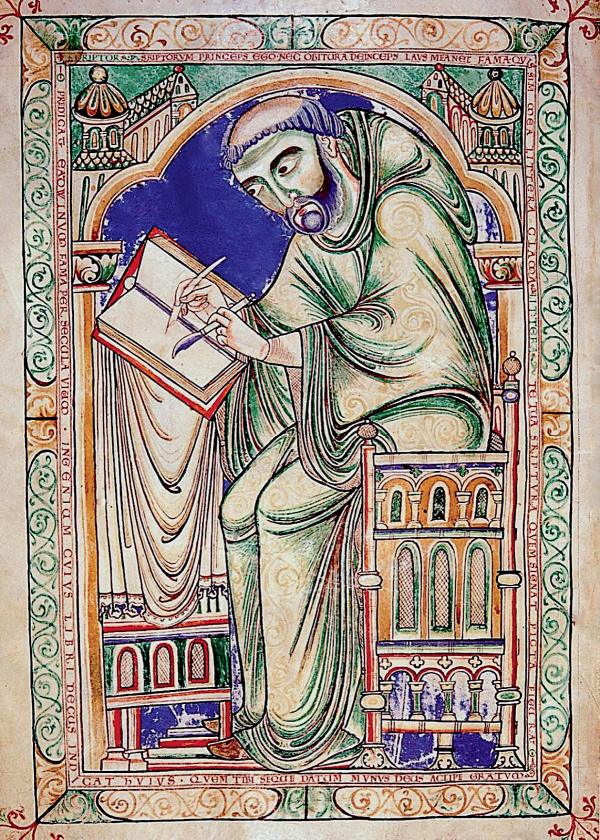 SCRIPTOR SRIPTORUM PRINCEPS EGO NEC OBITURA DEINCEPS LAVS MEA NEC FAMA QVI
SIM MEA LITTERA CLAMA LITTERA TE TUA SCRIPTURA QUEM SIGNAT PICTA FIGURA
PREDICAT EADWINVM FAMA PER SECULA VIVVM · INGENIUM CVIVS LIBRI DECVS INDI
CAT HVIVS · QVEM TIBI SEQVE DATVM MVNVS DEVS ACCIPE GRATVM